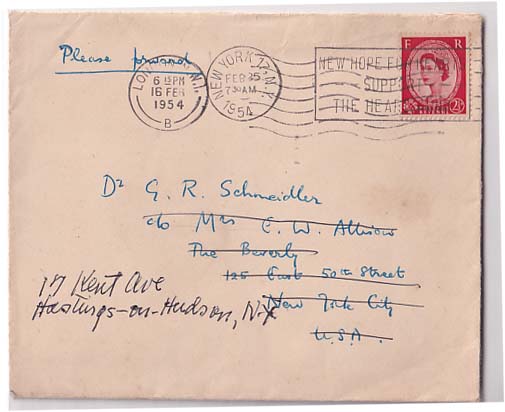 Please forward
LONDON N.1.
6 15PM
16 FEB
1954
B
NEW YORK 17, N.Y.
FEB 25
7 30 AM
1954
NEW HOPE FOR
SUPPORT
THE HEART FUND
E R
2½
Dr G. R. Schmeidler
c/o Mrs E. W. Allison
The Beverly
125 East 50th Street
New York City
U.S.A.
17 Kent Ave
Hastings-on-Hudson, N.Y.